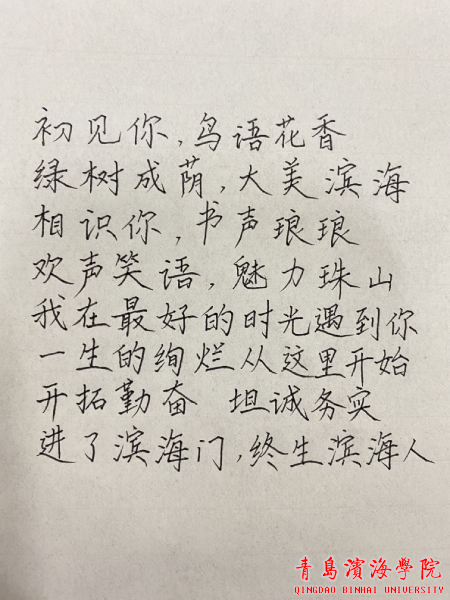 初见你,鸟语花香
绿树成荫,大美滨海
相识你,书声琅琅
欢声笑语,魅力珠山
我在最好的时光遇到你
一生的绚烂从这里开始
开拓勤奋 坦诚务实
进了滨海门,终生滨海人
青島濱海學院
QINGDAO BINHAI UNIVERSITY